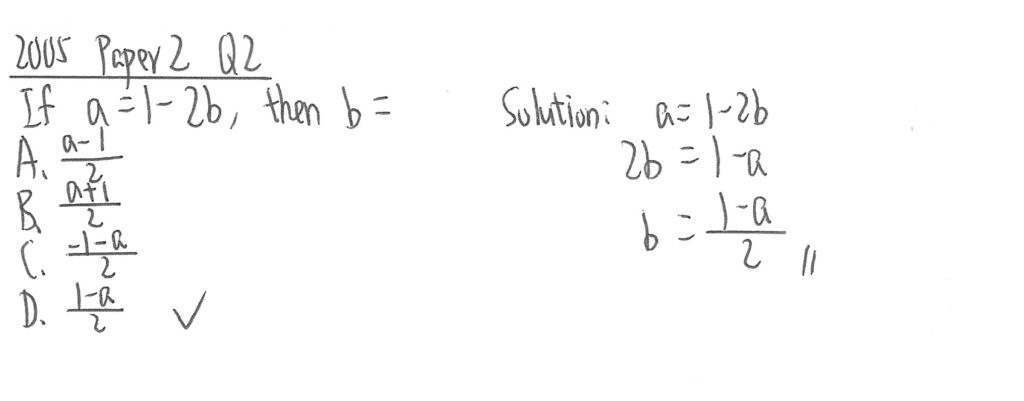 2005 Paper 2 Q2
If a = 1 - 2b, then b =
A. \frac{a-1}{2}
B. \frac{a+1}{2}
C. \frac{-1-a}{2}
D. \frac{1-a}{2} ✓
Solution: a = 1 - 2b
2b = 1 - a
b = \frac{1-a}{2} //